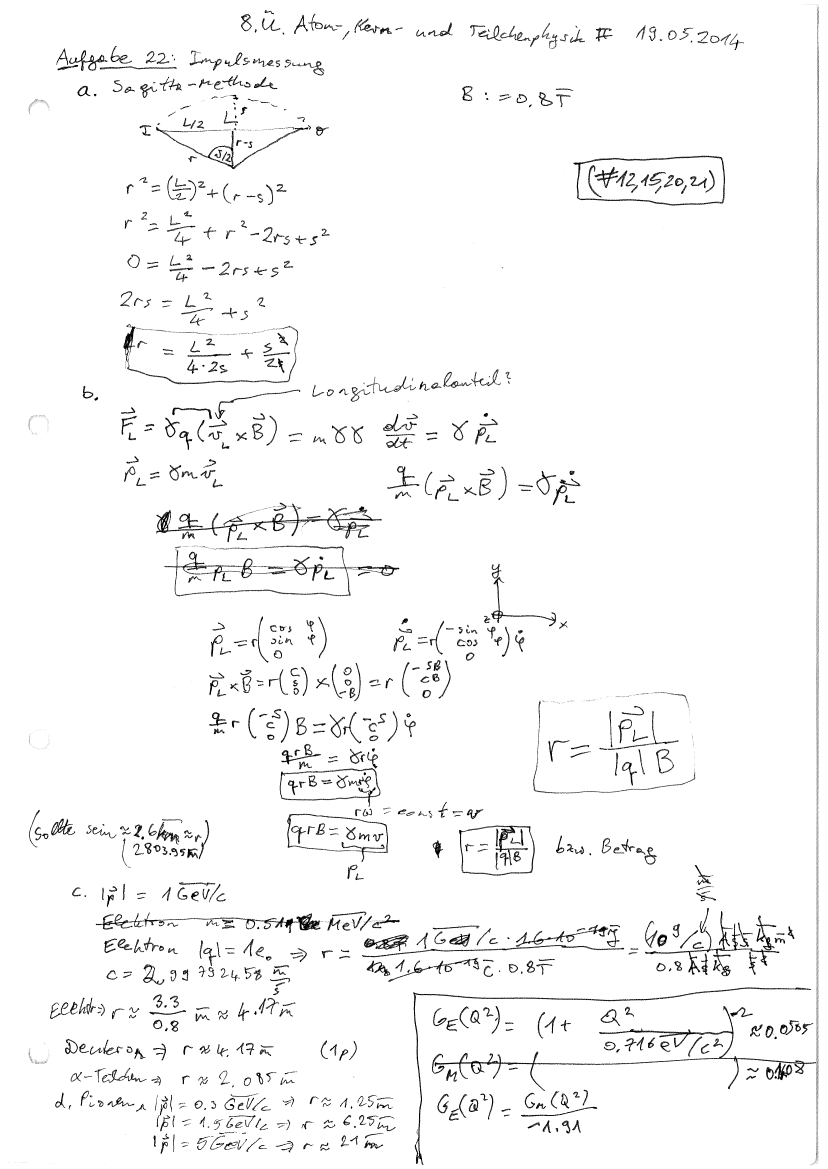 8. Ü. Atom-, Kern- und Teilchenphysik II 19.05.2014
Aufgabe 22: Impulsmessung
a. Sagitta-Methode
B := 0,8 T
I L/2 s
r ϑ/2 r-s
(#12,15,20,21)
r² = (L/2)² + (r-s)²
r² = L²/4 + r² - 2rs + s²
0 = L²/4 - 2rs + s²
2rs = L²/4 + s²
r = L²/(4·2s) + s/2
b.
Longitudinalanteil?
F_L = γq(v_L × B) = mγγ dv/dt = γ ṗ_L
p_L = γm v_L
q/m (p_L × B) = γ ṗ_L
q/m (p_L × B) = γ ṗ_L
q/m p_L B = γ ṗ_L = 0
y
z x
p_L = r (cos φ, sin φ, 0) ṗ_L = r (-sin φ, cos φ, 0) φ̇
p_L × B = r (c, s, 0) × (0, 0, -B) = r (-sB, cB, 0)
q/m r (-s, c, 0) B = γr (-s, c, 0) φ̇
r = |p_L| / |q| B
qrB/m = γrφ̇
qrB = γmrφ̇
rω = const = v
(sollte sein ≈ 2.6 km ≈ r)
(2803.95 m)
qrB = γmv
p_L
r = |p_L| / |q|B bzw. Betrag
c. |p| = 1 GeV/c
Elektron m = 0.511 MeV/c²
Elektron |q| = 1e₀ ⇒ r = 1 GeV/c · 1.6·10⁻¹⁹ J / 1.6·10⁻¹⁹ C · 0.8 T = (10⁹/c) / 0.8
c = 2,99792458 m/s
Elektr ⇒ r ≈ 3.3/0.8 m ≈ 4.17 m
Deuteron ⇒ r ≈ 4.17 m (1p)
α-Teilchen ⇒ r ≈ 2.085 m
d. Pionen |p| = 0.3 GeV/c ⇒ r ≈ 1.25 m
|p| = 1.5 GeV/c ⇒ r ≈ 6.25 m
|p| = 5 GeV/c ⇒ r ≈ 21 m
G_E(Q²) = (1 + Q² / 0.71 GeV/c²)⁻² ≈ 0.0505
G_M(Q²) = ( ) ≈
G_E(Q²) = G_M(Q²) / -1.91